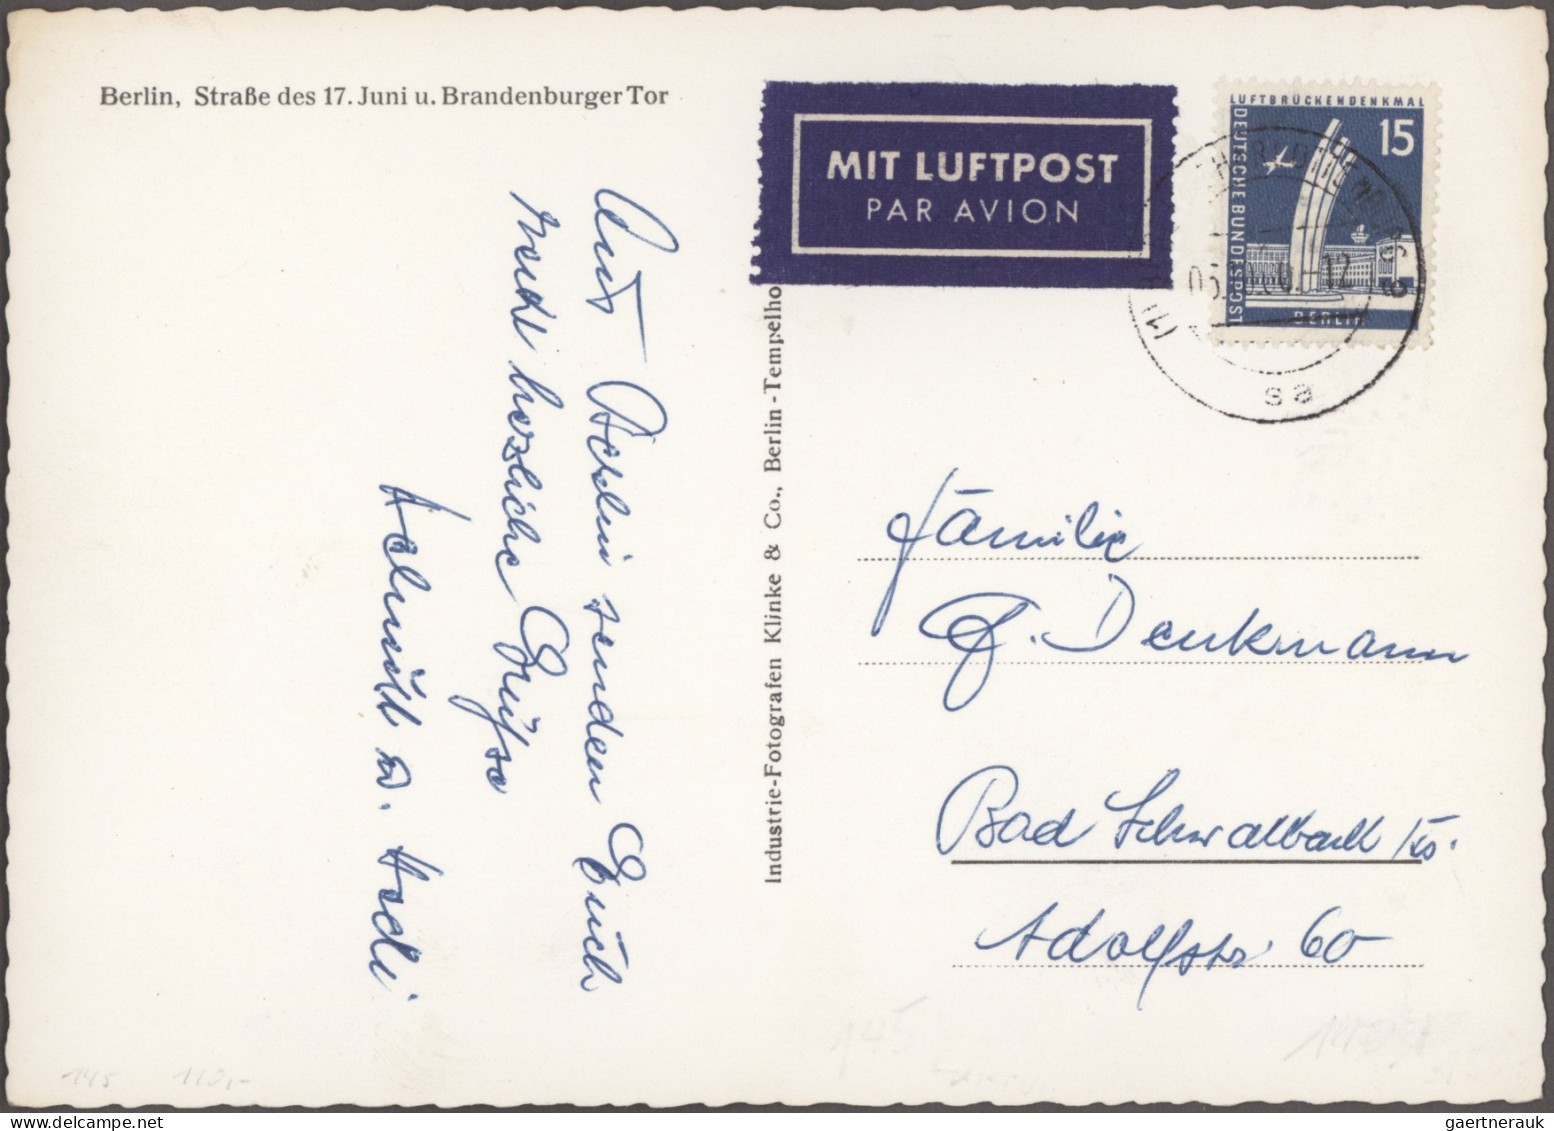 Berlin, Straße des 17. Juni u. Brandenburger Tor
MIT LUFTPOST
PAR AVION
LUFTBRÜCKENDENKMAL
15
DEUTSCHE BUNDESPOST
BERLIN
sa
Aus Berlin senden Euch
recht herzliche Grüße
Helmuth u. Hedi
Industrie-Fotografen Klinke & Co., Berlin-Tempelho
Familie
G. Denkmann
Bad Schwalbach /Ts.
Adolfstr 60
145 110,-
145
gaertnerauk